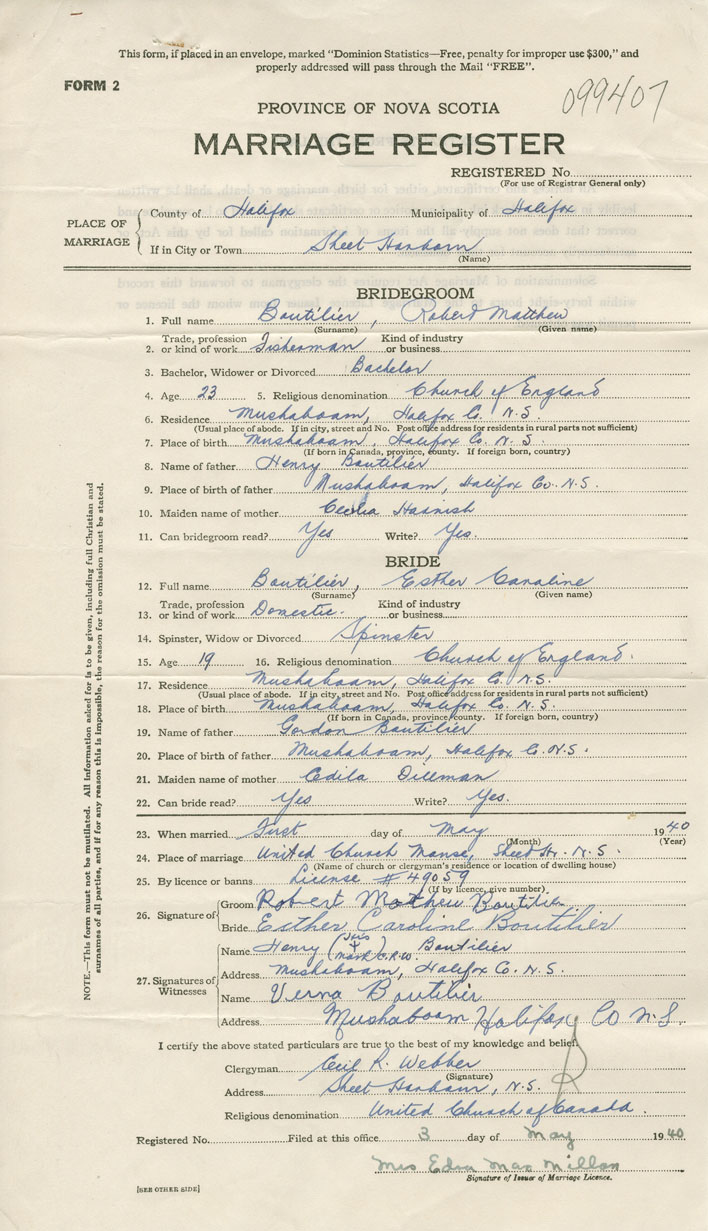 This form, if placed in an envelope, marked "Dominion Statistics—Free, penalty for improper use $300," and
properly addressed will pass through the Mail "FREE".
FORM 2
099407
PROVINCE OF NOVA SCOTIA
MARRIAGE REGISTER
REGISTERED No.
(For use of Registrar General only)
PLACE OF MARRIAGE
County of Halifax Municipality of Halifax
If in City or Town Sheet Harbour
(Name)
BRIDEGROOM
1. Full name Boutilier, Robert Matthew
(Surname) (Given name)
2. Trade, profession or kind of work Fisherman Kind of industry or business
3. Bachelor, Widower or Divorced Bachelor
4. Age 23 5. Religious denomination Church of England
6. Residence Mushaboom, Halifax Co. N.S.
(Usual place of abode. If in city, street and No. Post office address for residents in rural parts not sufficient)
7. Place of birth Mushaboom, Halifax Co. N.S.
(If born in Canada, province, county. If foreign born, country)
8. Name of father Henry Boutilier
9. Place of birth of father Mushaboom, Halifax Co. N.S.
10. Maiden name of mother Cecilia
11. Can bridegroom read? Yes Write? Yes.
BRIDE
12. Full name Boutilier, Esther Caroline
(Surname) (Given name)
13. Trade, profession or kind of work Domestic. Kind of industry or business
14. Spinster, Widow or Divorced Spinster
15. Age 19 16. Religious denomination Church of England.
17. Residence Mushaboom, Halifax Co. N.S.
(Usual place of abode. If in city, street and No. Post office address for residents in rural parts not sufficient)
18. Place of birth Mushaboom, Halifax Co. N.S.
(If born in Canada, province, county. If foreign born, country)
19. Name of father Gordon Boutilier
20. Place of birth of father Mushaboom, Halifax Co. N.S.
21. Maiden name of mother Dillman
22. Can bride read? Yes Write? Yes.
23. When married First day of May 1940
(Month) (Year)
24. Place of marriage United Church Manse, Sheet Hr. N.S.
(Name of church or clergyman's residence or location of dwelling house)
25. By licence or banns License #49059
(If by licence, give number)
26. Signature of Groom Robert Mathew Boutilier
Bride Esther Caroline Boutilier
27. Signatures of Witnesses
Name Henry (his + mark C.R.W.) Boutilier
Address Mushaboom, Halifax Co. N.S.
Name Verna Boutilier
Address Mushaboom Halifax Co N.S.
I certify the above stated particulars are true to the best of my knowledge and belief.
Clergyman Cecil R. Webber
(Signature)
Address Sheet Harbour, N.S.
Religious denomination United Church of Canada.
Registered No. Filed at this office 3 day of May 1940
Mrs Edna MacMillan
Signature of Issuer of Marriage Licence.
[SEE OTHER SIDE]
NOTE.—This form must not be mutilated. All information asked for is to be given, including full Christian and
surnames of all parties, and if for any reason this is impossible, the reason for the omission must be stated.